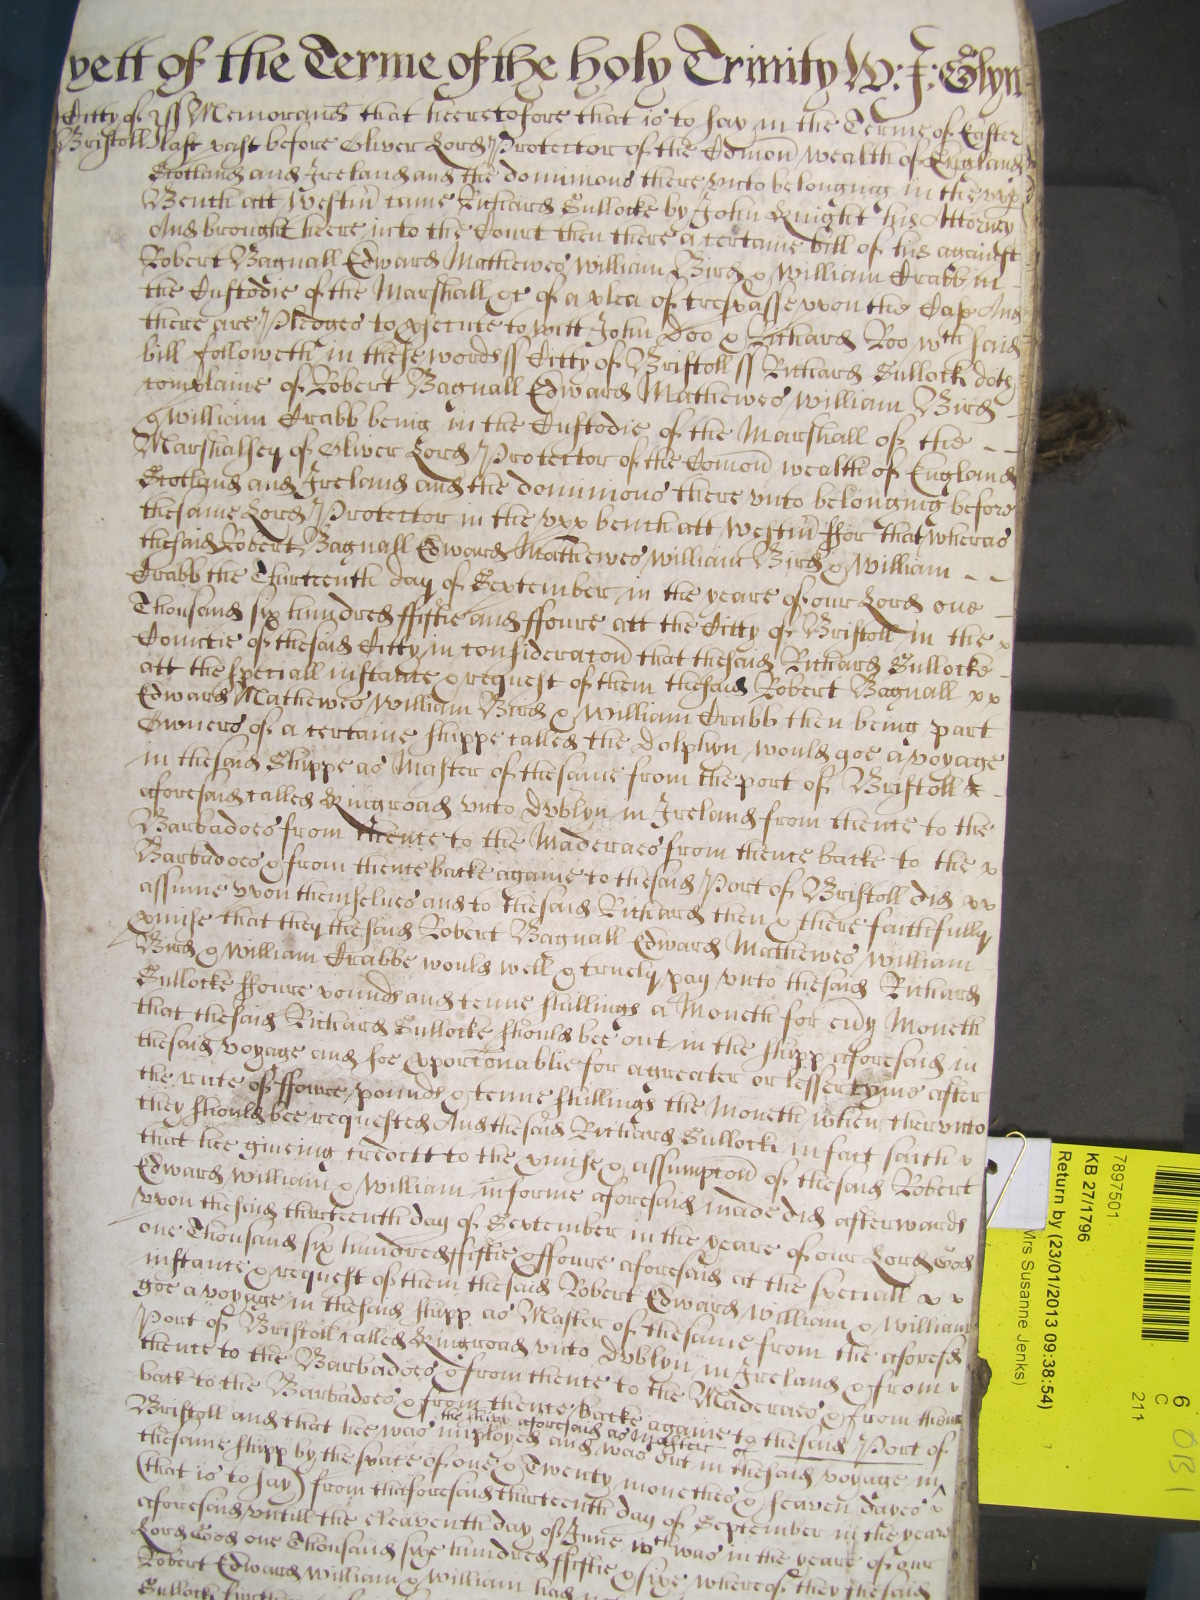 yett of the Terme of the holy Trinity W: J: Glyn
Citty of ss Memorand that heeretofore that is to say in the Terme of Easter
Bristoll last past before Oliver Lord Protector of the Comon wealth of England
Scotland and Ireland and the dominions there unto belonging in the upp
Bench att Westm came Richard Bullocke by John Knight his Attorney
And brought heere into the Court then there a certaine bill of his against
Robert Bagnall Edward Mathewes William Bird & William Crabb in
the Custodie of the Marshall &c of a plea of trespasse upon the Case And
there are Pledges to psecute to witt John Doo & Richard Roo wch said
bill followeth in these words ss Citty of Bristoll ss Richard Bullocke doth
complaine of Robert Bagnall Edward Mathewes William Bird
& William Crabb being in the Custodie of the Marshall of the
Marshalsey of Oliver Lord Protector of the Comon wealth of England
Scotland and Ireland and the dominions there unto belonging before
the same Lord Protector in the upp bench att Westm ffor that wheras
the said Robert Bagnall Edward Mathewes William Bird & William
Crabb the Thirteenth day of September in the yeare of our Lord one
Thousand six hundred ffiftie and ffoure att the Citty of Bristoll in the
Countie of the said Citty in consideracon that the said Richard Bullocke
att the speciall instance & request of them the said Robert Bagnall
Edward Mathewes William Bird & William Crabb then being part
Owners of a certaine shippe called the Dolphyn would goe a voyage
in the said Shippe as Master of the same from the port of Bristoll
aforesaid called Kingroad unto Dublyn in Ireland from thence to the
Barbadoes from thence to the Maderaes from thence backe to the
Barbadoes & from thence backe againe to the said Port of Bristoll did
assume upon themselves and to the said Richard then & there faithfully
pmise that they the said Robert Bagnall Edward Mathewes William
Bird & William Crabbe would well & truely pay unto the said Richard
Bullocke ffoure pounds and tenne shillings a Moneth for evy Moneth
that the said Richard Bullocke should bee out in the shipp aforesaid in
the said voyage and soe pportonablie for a greater or lesser tyme after
the rate of ffoure pounds & tenne shillings the Moneth when thereunto
they should bee requested And the said Richard Bullocke in fact saith
that hee giveing creditt to the pmise & assumpton of the said Robert
Edward William & William in forme aforesaid made did afterwards
upon the said thirteenth day of September in the yeare of our Lord God
one Thousand six hundred ffiftie & ffoure aforesaid at the speciall
instance & request of them the said Robert Edward William & William
goe a voyage in the said shipp as Master of the same from the aforesd
Port of Bristoll called Kingroad unto Dublyn in Ireland & from
thence to the Barbadoes & from thence to the Maderaes & from thence
back to the Barbadoes & from thence backe againe to the said Port of
the shipp aforesaid as Master of
Bristoll and that hee was imployed and was out in the said voyage in
the same shipp by the space of one & Twenty monethes & seaven dayes
(that is to say) from the aforesaid thirteenth day of September in the yeare
aforesaid untill the eleaventh day of June wch was in the yeare of our
Lord God one Thousand sixe hundred ffiftie & sixe whereof they the said
Robert Edward William & William had
Bullocke
7897501
KB 27/1796
Return by (23/01/2013 09:38:54)
Mrs Susanne Jenks)
6
C
211